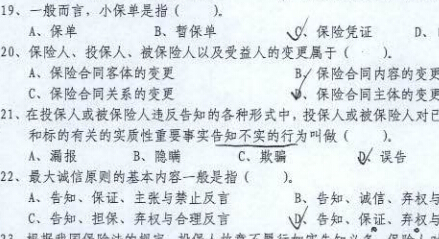 19、一般而言，小保单是指（　　）。
A、保单　　B、暂保单　　C、保险凭证　　D、
20、保险人、投保人、被保险人以及受益人的变更属于（　　）。
A、保险合同客体的变更　　B、保险合同内容的变更
C、保险合同关系的变更　　D、保险合同主体的变更
21、在投保人或被保险人违反告知的各种形式中，投保人或被保险人对已
和标的有关的实质性重要事实告知不实的行为叫做（　　）。
A、漏报　　B、隐瞒　　C、欺骗　　D、误告
22、最大诚信原则的基本内容一般是指（　　）。
A、告知、保证、主张与禁止反言　　B、告知、诚信、弃权与
C、告知、担保、弃权与合理反言　　D、告知、保证、弃权与